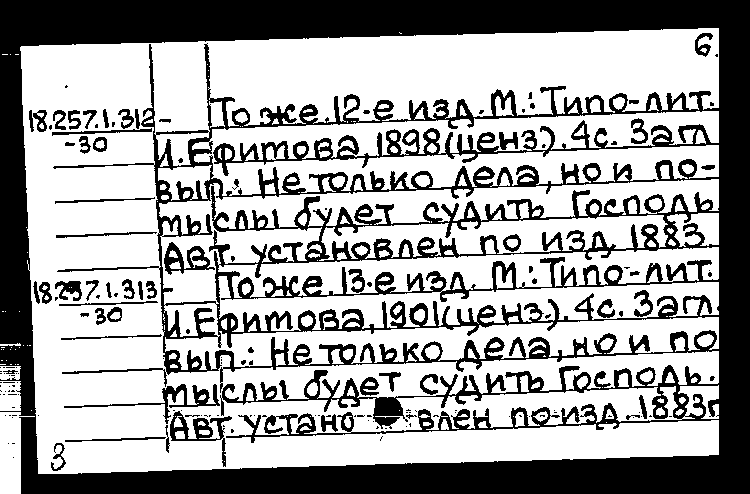 6.
18.257.1.312- То же. 12-е изд. М.: Типо-лит.
-30 И. Ефитова, 1898(ценз.). 4с. Загл
вып.: Не только дела, но и по-
мыслы будет судить Господь
Авт. установлен по изд. 1883.
18.257.1.313- То же. 13-е изд. М.: Типо-лит.
-30 И. Ефитова, 1901(ценз.). 4с. Загл.
вып.: Не только дела, но и по
мыслы будет судить Господь.
Авт. установлен по изд. 1883г
3